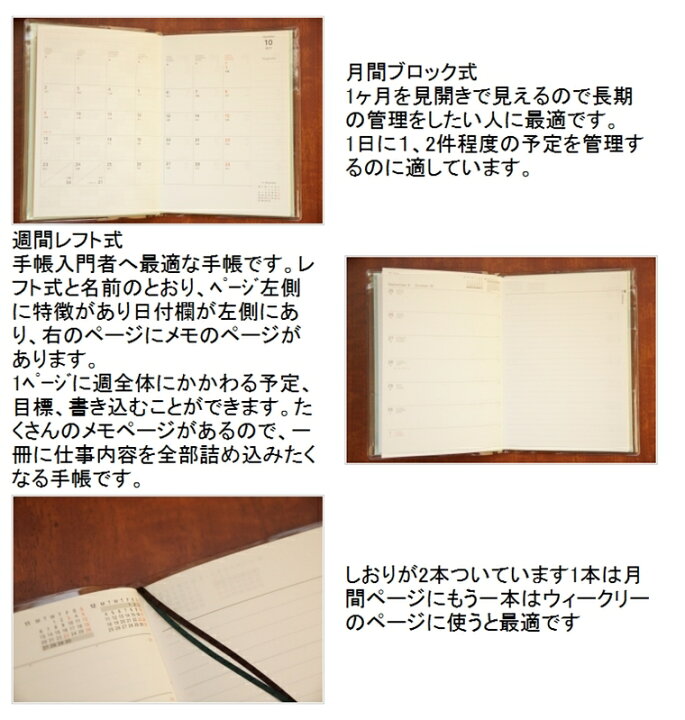 月間ブロック式
1ヶ月を見開きで見えるので長期
の管理をしたい人に最適です。
1日に１、2件程度の予定を管理す
るのに適しています。
週間レフト式
手帳入門者へ最適な手帳です。レ
フト式と名前のとおり、ﾍﾟｰｼﾞ左側
に特徴があり日付欄が左側にあ
り、右のページにメモのページが
あります。
1ﾍﾟｰｼﾞに週全体にかかわる予定、
目標、書き込むことができます。た
くさんのメモページがあるので、一
冊に仕事内容を全部詰め込みたく
なる手帳です。
しおりが2本ついています1本は月
間ページにもう一本はウィークリー
のページに使うと最適です
10